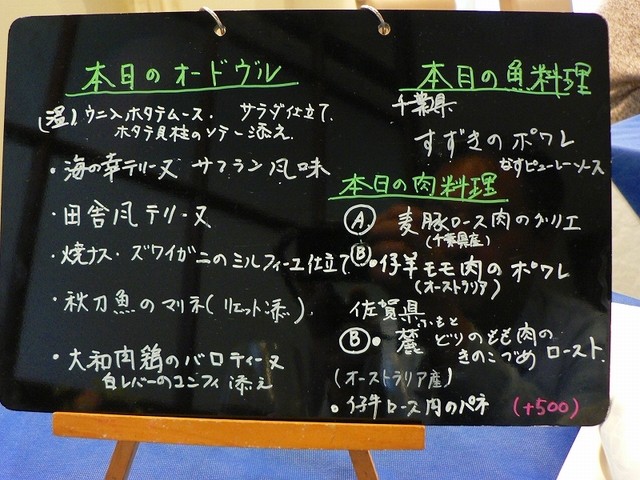 本日のオードヴル
(温)ウニ入ホタテムース・ サラダ仕立て
ホタテ貝柱のソテー添え
・海の幸テリーヌ サフラン風味
・田舎風テリーヌ
・焼ナス・ズワイガニのミルフィーユ仕立て
・秋刀魚のマリネ(リエット添)
・大和肉鶏のバロティーヌ
白レバーのコンフィ添え
本日の魚料理
千葉県
すずきのポワレ
なすピューレーソース
本日の肉料理
Ⓐ 麦豚ロース肉のグリエ
(千葉県産)
Ⓑ・仔羊モモ肉のポワレ
(オーストラリア)
佐賀県
ふもと
Ⓑ・麓どりのもも肉の
きのこづめ ロースト
(オーストラリア産)
・仔牛ロース肉のパネ (+500)